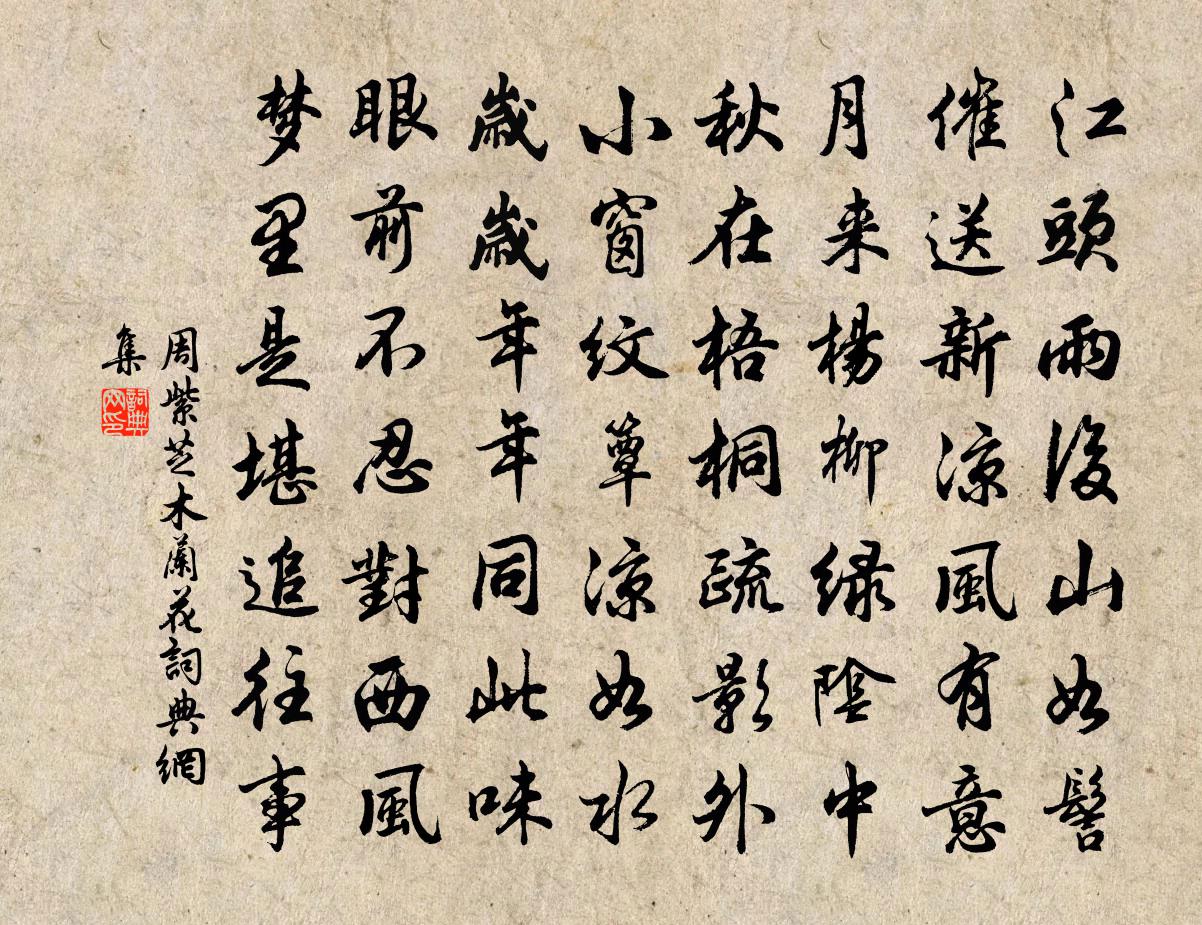 江頭雨後山如髻
催送新涼風有意
月来楊柳緑陰中
秋在梧桐疏影外
小窗紋簟涼如水
歲歲年年同此味
眼前不忍對西風
梦里是堪追往事
周紫芝木蘭花詞典網
集
詞典
网印